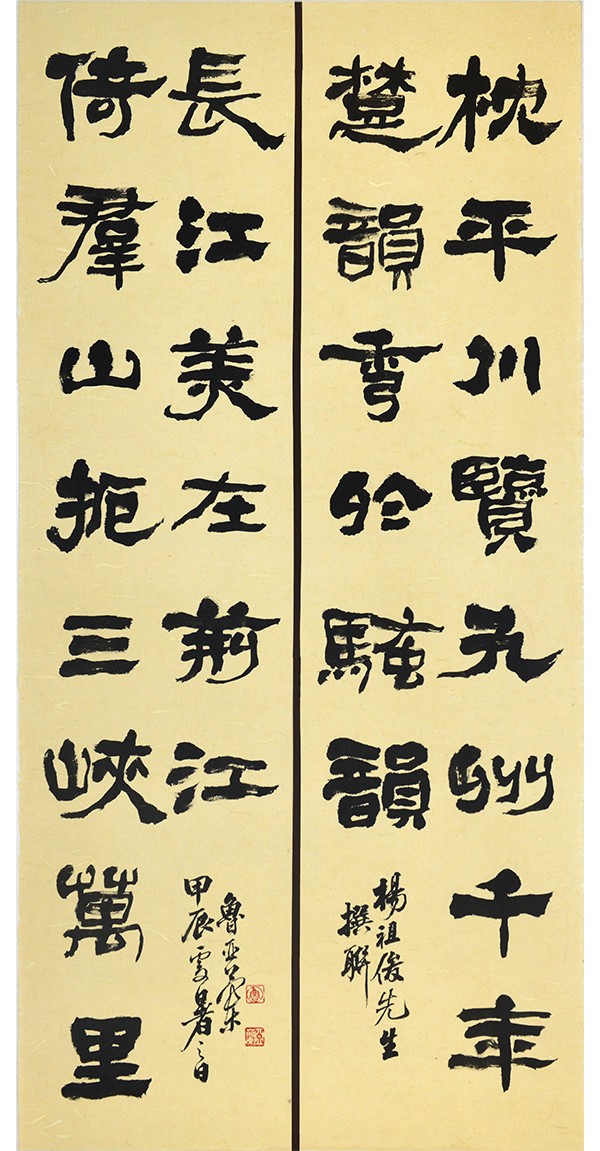 枕平川覽九州千年
楚韻雩於騷韻
楊祖俊先生
撰聯
倚羣山扼三峽萬里
長江美在荊江
甲辰處暑之日
魯亞